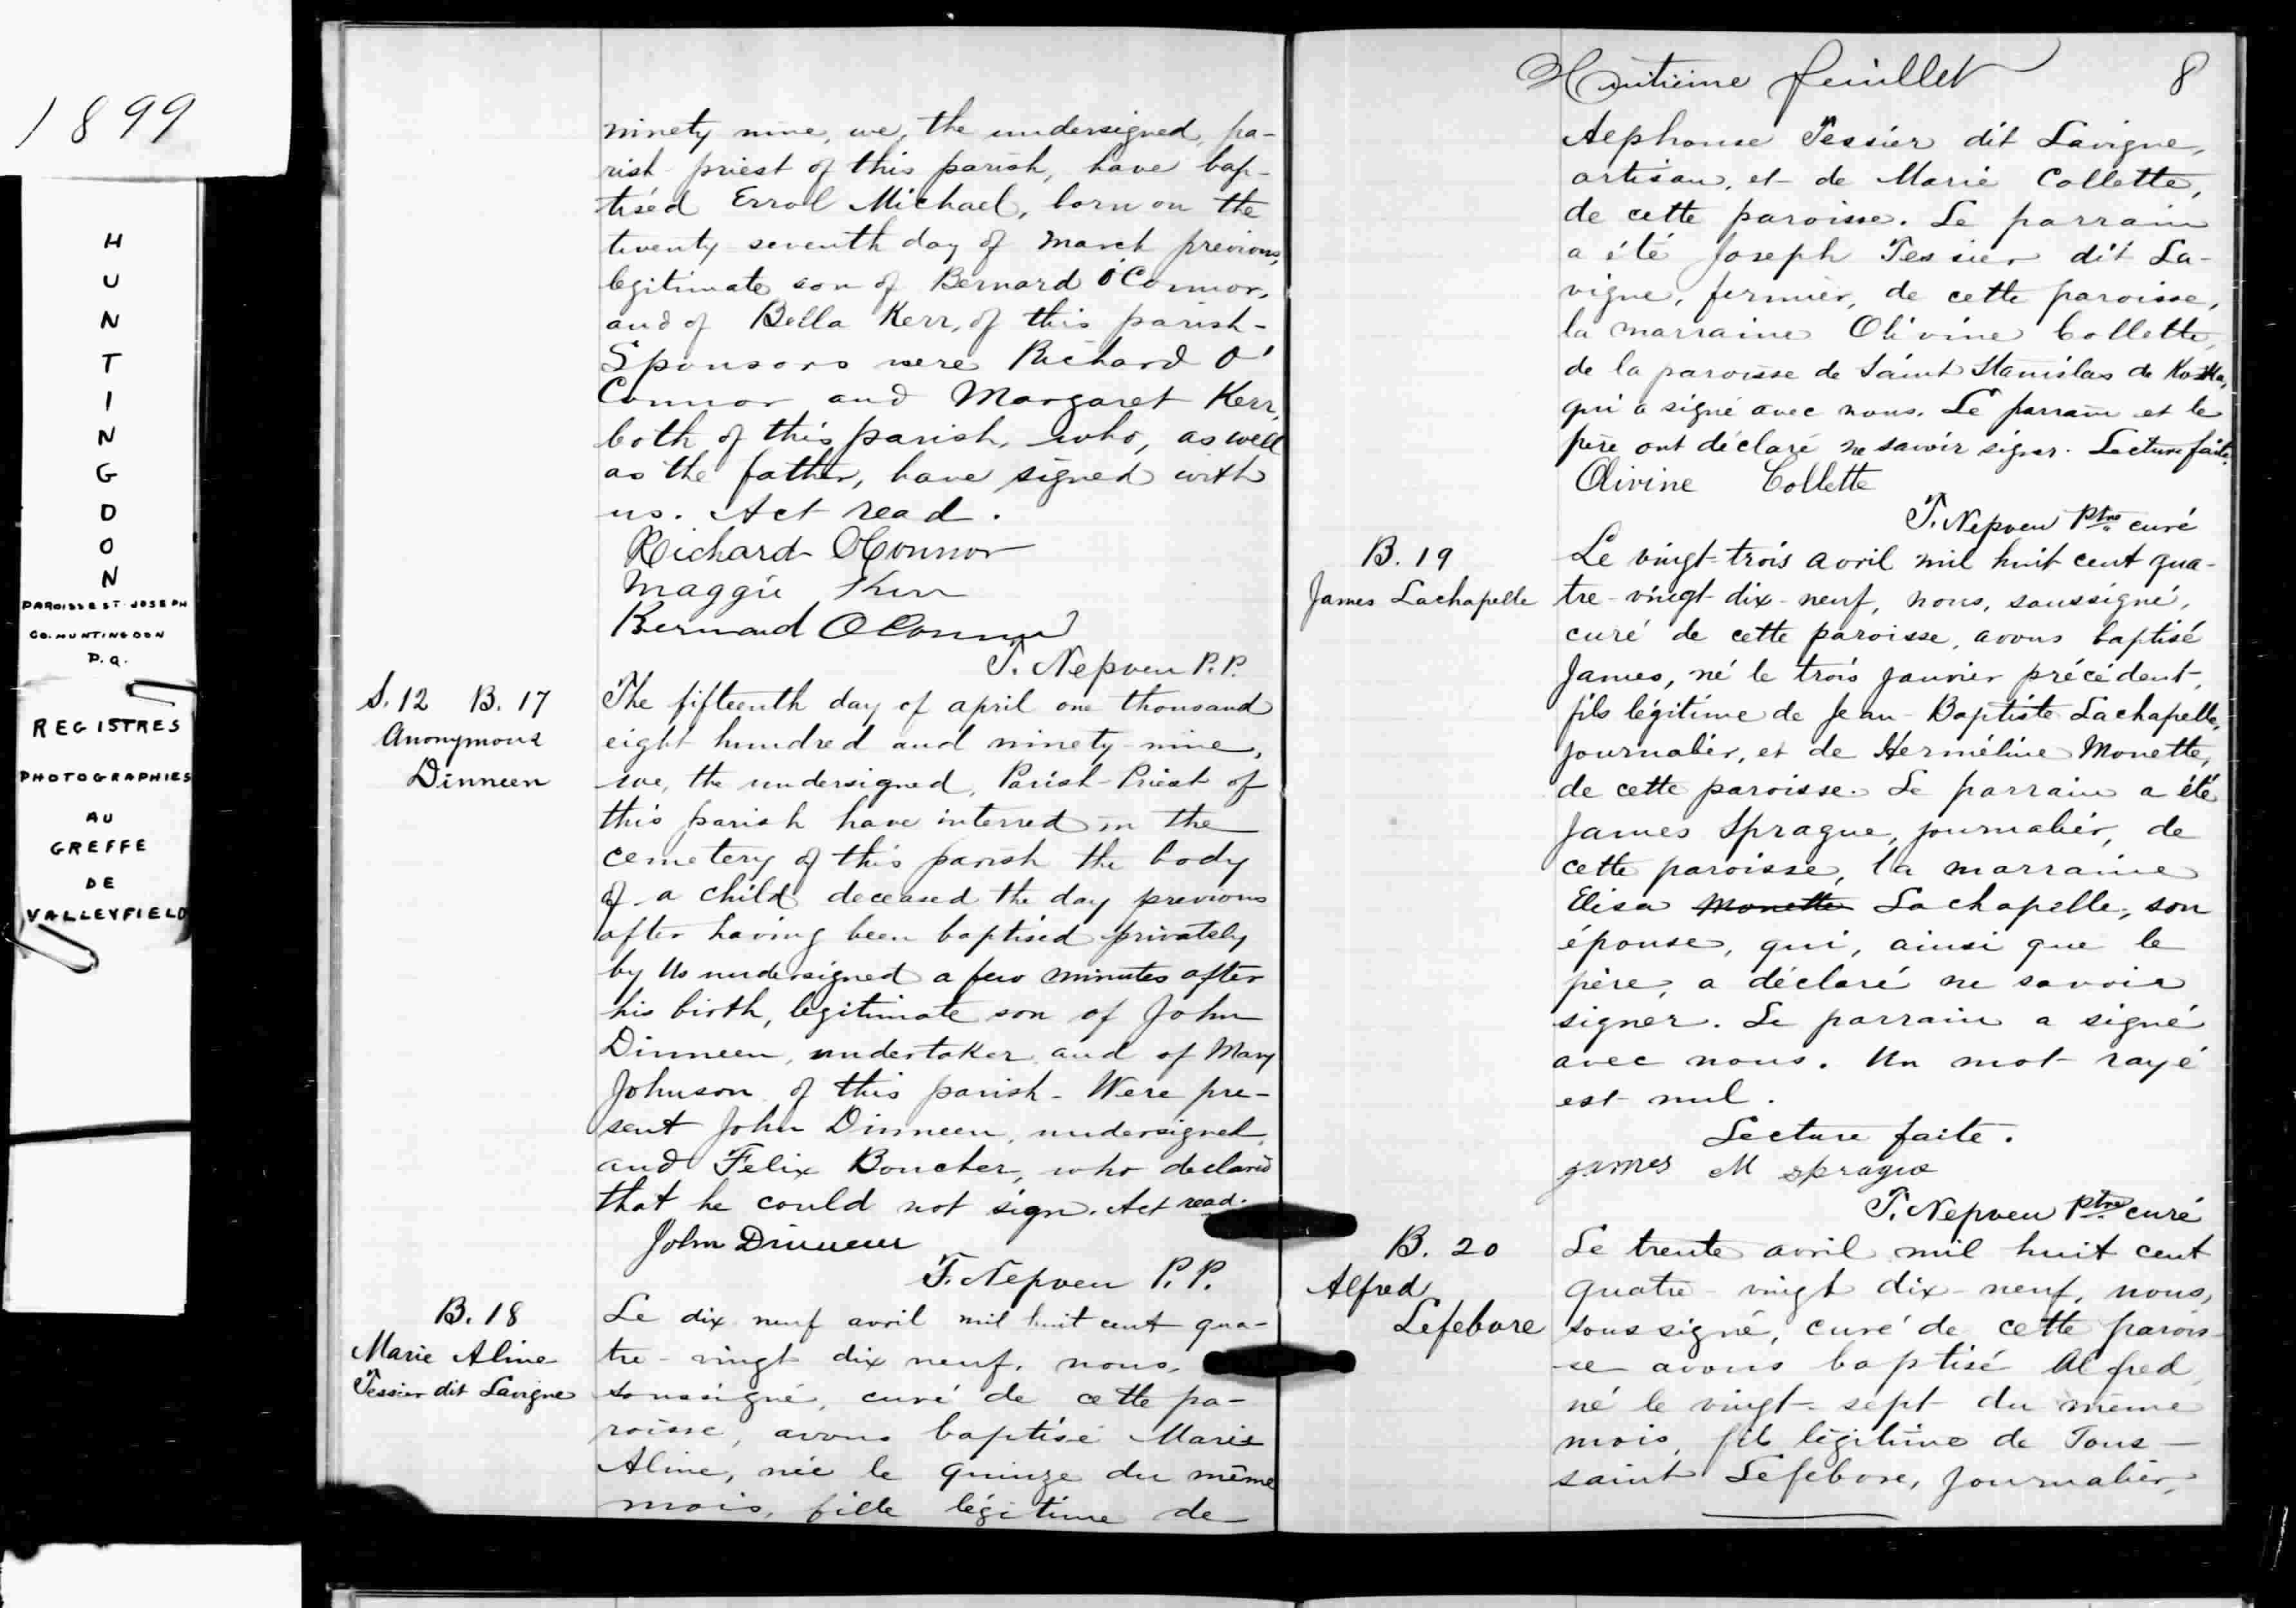 1899
H
U
N
T
I
N
G
D
O
N
PAROISSE ST. JOSEPH
CO. HUNTINGDON
P.Q.
REGISTRES
PHOTOGRAPHIES
AU
GREFFE
DE
VALLEYFIELD
ninety nine, we, the undersigned, pa-
rish priest of this parish, have bap-
tised Errol Michael, born on the
twenty seventh day of March previous,
legitimate son of Bernard O'Connor,
and of Bella Kerr, of this parish-
Sponsors were Richard O'
Connor and Margaret Kerr,
both of this parish, who, as well
as the father, have signed with
us. Act read.
Richard OConnor
Maggie Kerr
Bernard OConnor
T. Nepveu P.P.
S.12 B.17
Anonymous
Dinneen
The fifteenth day of april one thousand
eight hundred and ninety-nine,
we, the undersigned, Parish-Priest of
this parish have interred in the
cemetery of this parish the body
of a child deceased the day previous
after having been baptised privately
by Us undersigned a few minutes after
his birth, legitimate son of John
Dinneen, undertaker and of Mary
Johnson of this parish- Were pre-
sent John Dinneen, undersigned,
and Felix Boucher, who declared
that he could not sign. Act read.
John Dinneen
T. Nepveu P.P.
B.18
Marie Aline
Tessier dit Lavigne
Le dix neuf avril mil huit cent qua-
tre-vingt dix neuf, nous,
soussigné, curé de cette pa-
roisse, avons baptisé Marie
Aline, née le quinze du même
mois, fille légitime de
Huitième feuillet 8
Alphonse Tessier dit Lavigne,
artisan, et de Marie Collette,
de cette paroisse. Le parrain
a été Joseph Tessier dit La-
vigne, fermier, de cette paroisse,
la marraine Olivine Collette,
de la paroisse de Saint Stanislas de Kostka,
qui a signé avec nous. Le parrain et le
père ont déclaré ne savoir signer. Lecture faite.
Olivine Collette
T. Nepveu Ptre curé
B. 19
James Lachapelle
Le vingt-trois avril mil huit cent qua-
tre-vingt-dix-neuf, nous, soussigné,
curé de cette paroisse, avons baptisé
James, né le trois janvier précédent,
fils légitime de Jean-Baptiste Lachapelle,
journalier, et de Herméline Monette,
de cette paroisse. Le parrain a été
James Sprague, journalier, de
cette paroisse, la marraine
Elisa Monette Lachapelle, son
épouse, qui, ainsi que le
père, a déclaré ne savoir
signer. Le parrain a signé
avec nous. Un mot rayé
est nul.
Lecture faite.
james M sprague
T. Nepveu Ptre curé
B. 20
Alfred
Lefebvre
Le trente avril mil huit cent
quatre-vingt dix-neuf, nous,
soussigné, curé de cette parois-
se avons baptisé Alfred,
né le vingt-sept du même
mois, fils légitime de Tous-
saint Lefebvre, journalier,